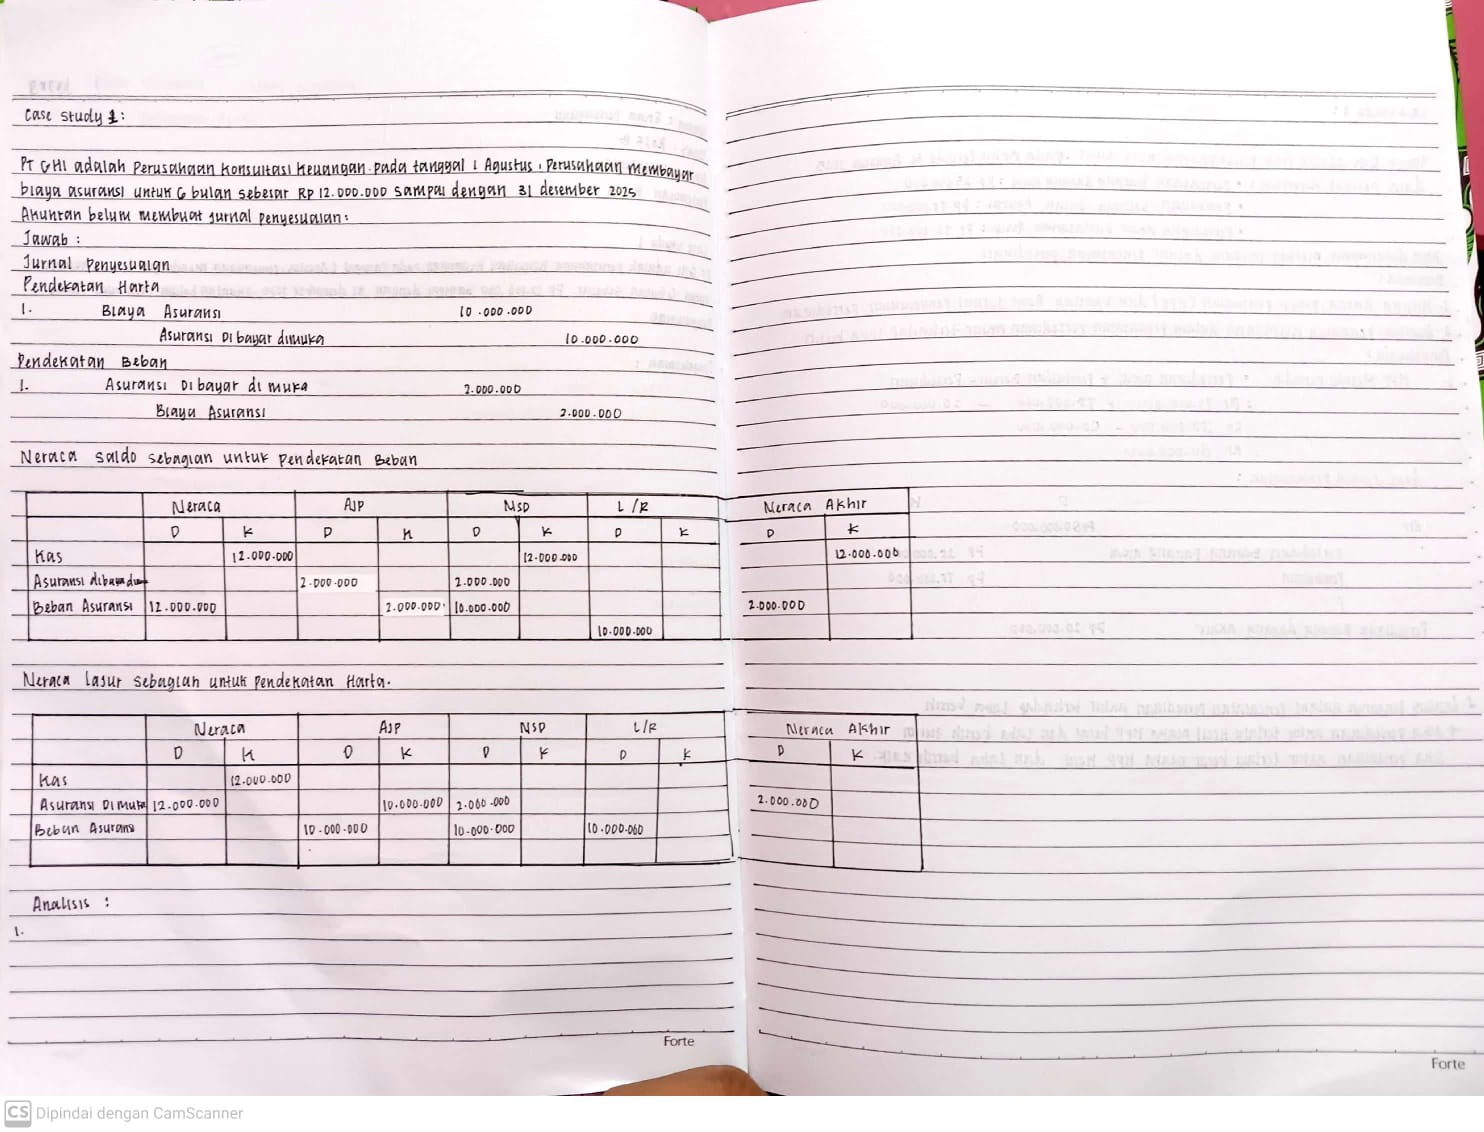 Case study 1:
PT GHI adalah Perusahaan Konsultasi Keuangan. Pada tanggal 1 Agustus, Perusahaan membayar
biaya asuransi untuk 6 bulan sebesar RP 12.000.000 sampai dengan 31 desember 2025
Akuntan belum membuat jurnal penyesuaian:
Jawab :
Jurnal Penyesuaian
Pendekatan Harta
1. Biaya Asuransi 10.000.000
Asuransi Dibayar dimuka 10.000.000
Pendekatan Beban
1. Asuransi Dibayar di muka 2.000.000
Biaya Asuransi 2.000.000
Neraca saldo sebagian untuk Pendekatan Beban
Neraca AJP NSD L/R Neraca Akhir
D K D K D K D K D K
Kas 12.000.000 12.000.000 12.000.000
Asuransi dibayar 2.000.000 2.000.000
Beban Asuransi 12.000.000 2.000.000 10.000.000 2.000.000
10.000.000
Neraca lajur sebagian untuk Pendekatan Harta.
Neraca AJP NSD L/R Neraca Akhir
D K D K D K D K D K
Kas 12.000.000
Asuransi Dimuka 12.000.000 10.000.000 2.000.000 2.000.000
Beban Asuransi 10.000.000 10.000.000 10.000.000
Analisis :
1.
Forte
Forte
CS Dipindai dengan CamScanner